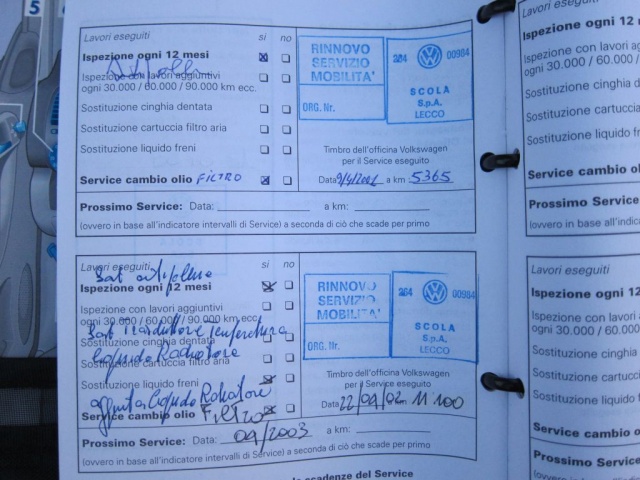 5
Lavori eseguiti si no
Ispezione ogni 12 mesi
Ispezione con lavori aggiuntivi
ogni 30.000 / 60.000 / 90.000 km ecc.
Sostituzione cinghia dentata
Sostituzione cartuccia filtro aria
Sostituzione liquido freni
Service cambio olio FILTRO
RINNOVO
SERVIZIO
MOBILITA'
ORG. Nr.
284 00984
SCOLA
S.p.A.
LECCO
Timbro dell'officina Volkswagen
per il Service eseguito
Data 9/4/2001 a km 5365
Prossimo Service: Data: a km:
(ovvero in base all'indicatore intervalli di Service) a seconda di ciò che scade per primo
Lavori eseguiti si no
Ispezione ogni 12 mesi
Ispezione con lavori aggiuntivi
ogni 30.000 / 60.000 / 90.000 km ecc.
Sost temperatura
Sostituzione cinghia dentata
liquido Radiatore
Sostituzione cartuccia filtro aria
Sostituzione liquido freni
aggiunta liquido Radiatore
Service cambio olio Filtro
RINNOVO
SERVIZIO
MOBILITA'
ORG. Nr.
284 00984
SCOLA
S.p.A.
LECCO
Timbro dell'officina Volkswagen
per il Service eseguito
Data 22/04/02 11100
Prossimo Service: Data: 04/2003 a km:
(ovvero in base all'indicatore intervalli di Service) a seconda di ciò che scade per primo
scadenze del Service
Lavori eseguiti
Ispezione ogni 12
Ispezione con lavori ag
ogni 30.000 / 60.000 /
Sostituzione cinghia d
Sostituzione cartuccia
Sostituzione liquido fr
Service cambio oli
Prossimo Service:
(ovvero in base all'indicato
Lavori eseguiti
Ispezione ogni 12
Ispezione con lavori
ogni 30.000 / 60.000
Sostituzione cinghia
Sostituzione cartuccia
Sostituzione liquido
Service cambio o
Prossimo Service
(ovvero in base all'indica